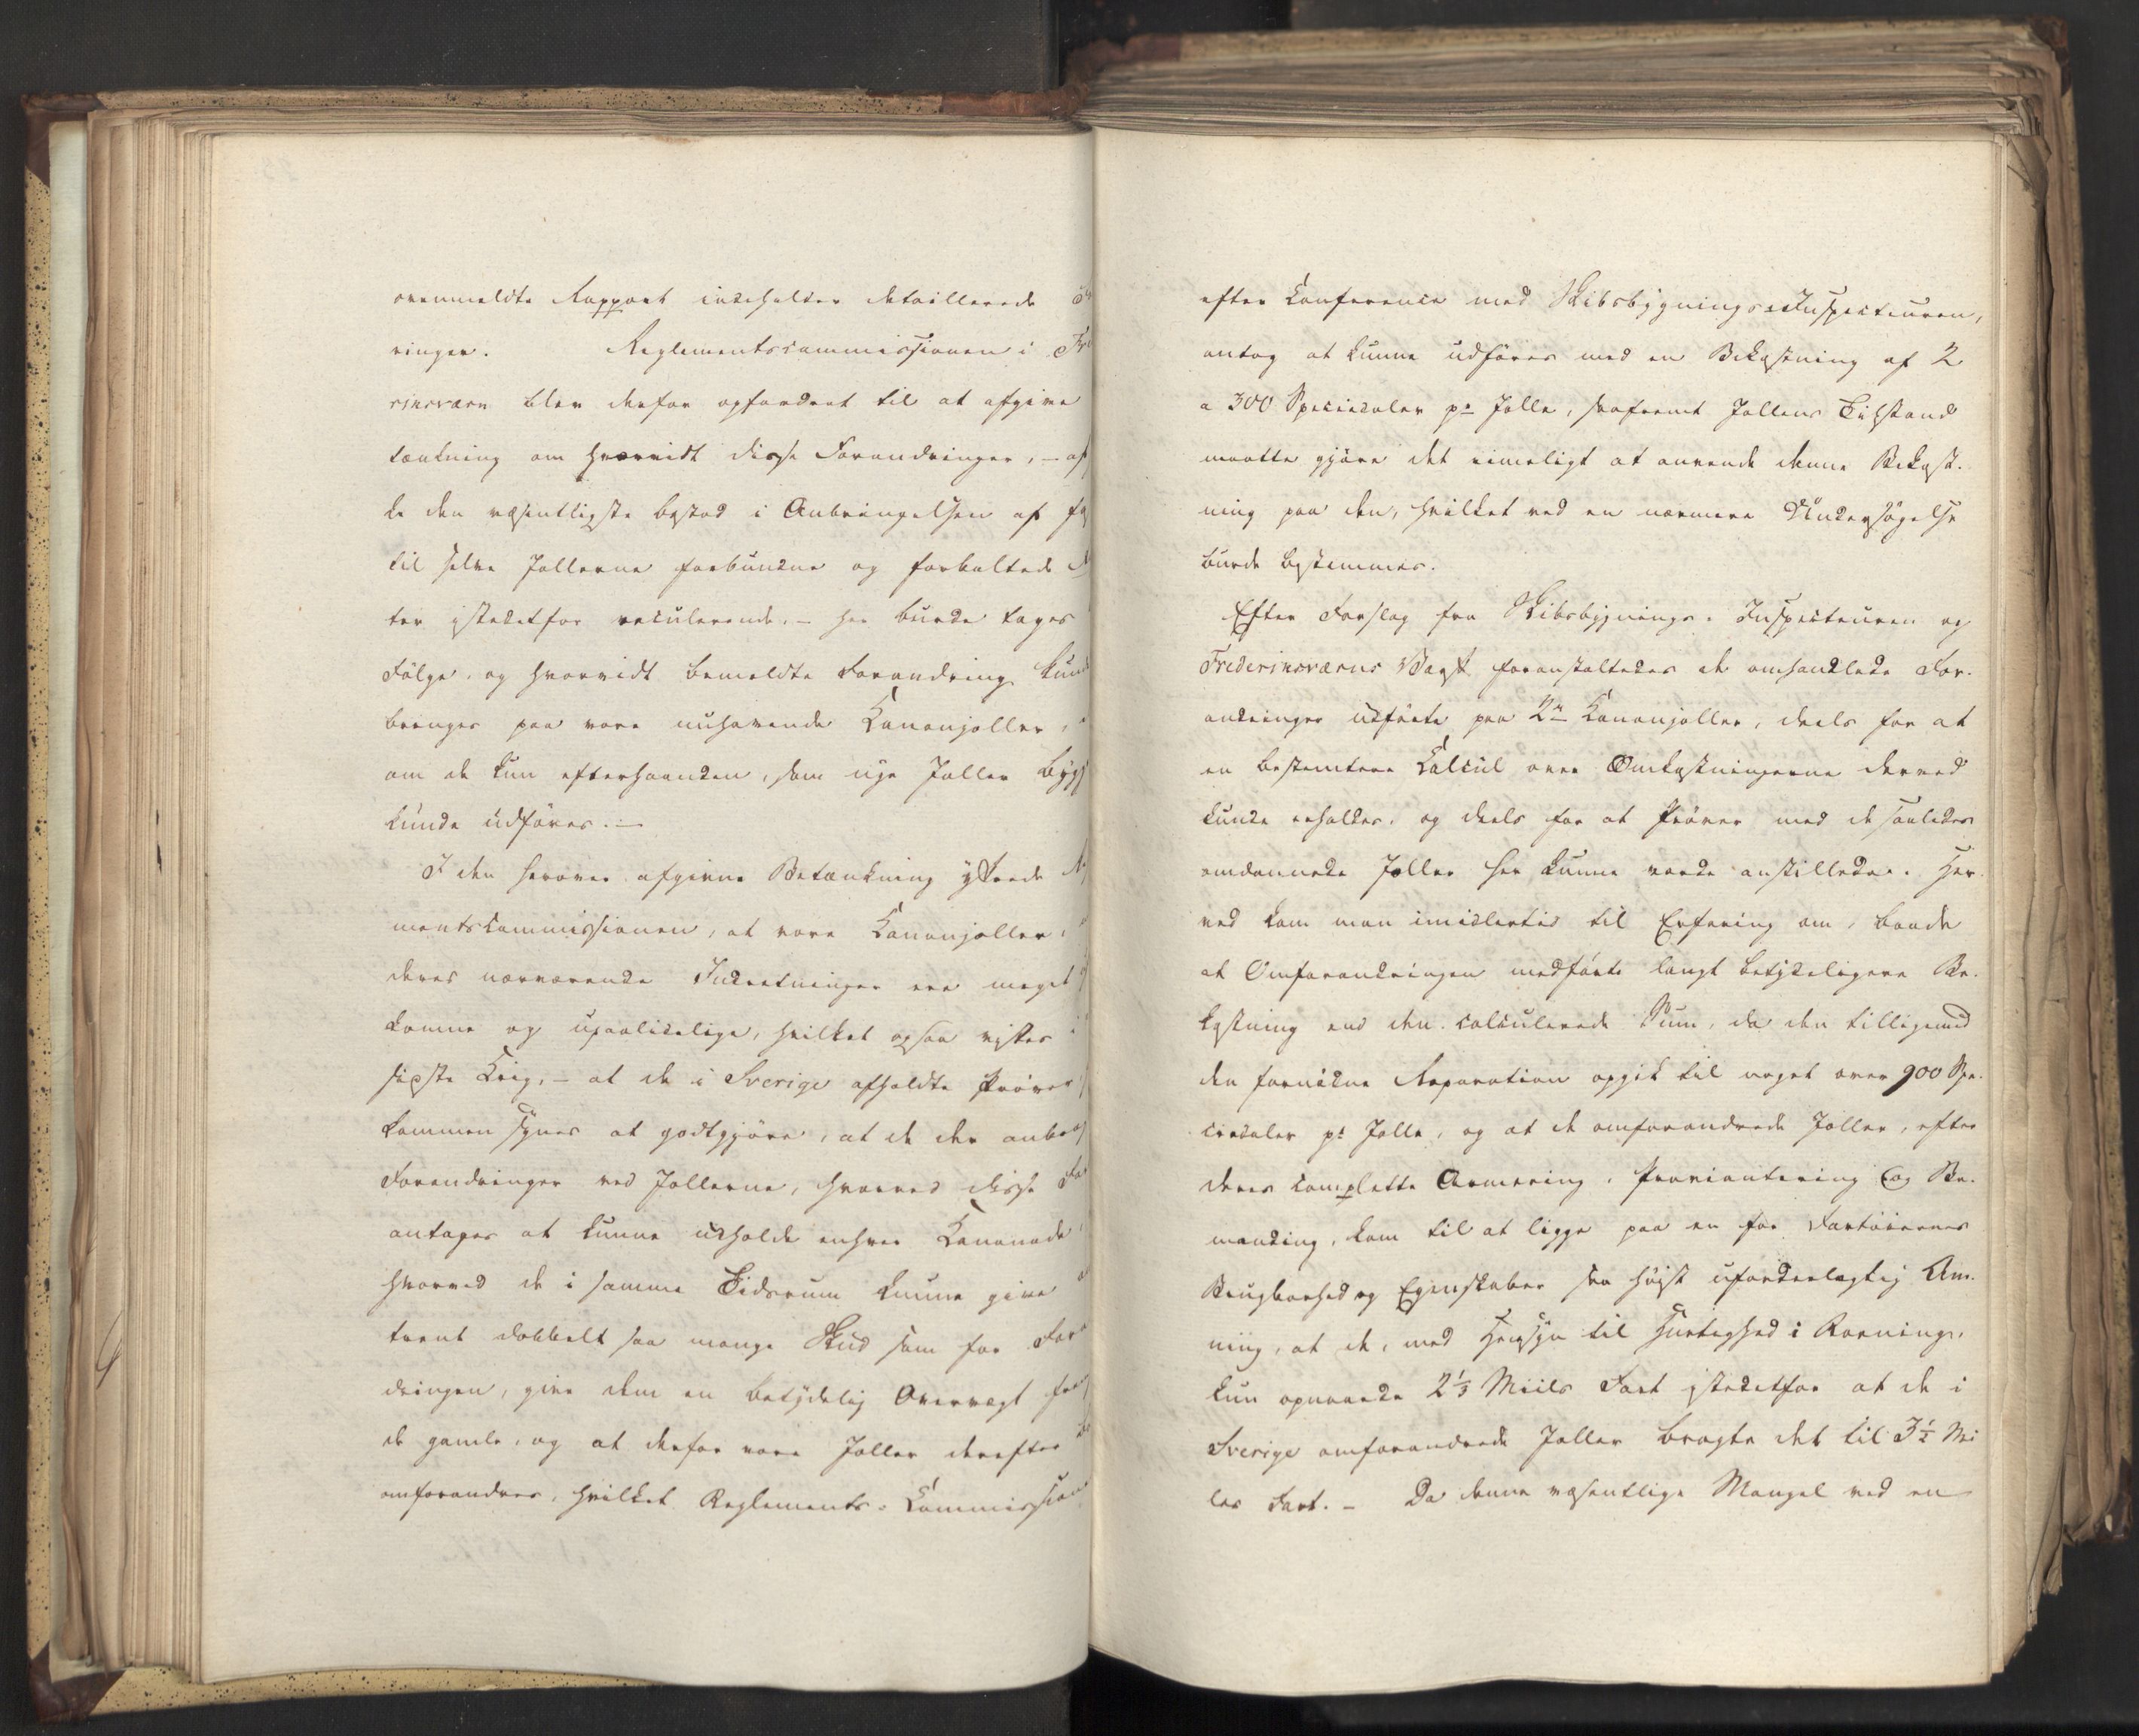 ovenmeldte Rapport indeholder detaillerede
ringer. Reglementscommissionen i Fre
riksværn blev derfor opfordret til at afgive
tænkning om hvorvidt disse Forandringer, – af
de den væsentligste bestod i Anbringelsen af fa
til selve Jollerne forbundne og forboltede
ter istedetfor reculerende, – her burde tages
Følge, og hvorvidt bemeldte Forandring kund
bringes paa vore nuhavende Kanonjoller,
om de kun efterhaanden, som nye Joller byg
kunde udføres. –
I den herover afgivne Betænkning yttrede
mentscommissionen, at vore Kanonjoller,
deres nærværende Indretninger ere meget
komne og upaalidelige, hvilket ogsaa vistes
sidste Krig, – at de i Sverige afholdte Prøver
kommen synes at godtgjøre, at de der anbra
Forandringer ved Jollerne, hvorved disse
antages at kunne udholde enhver Kanonade,
hvorved de i samme Tidsrum kunne give
trent dobbelt saa mange Skud som før For
dringen, give dem en betydelig Overvægt
de gamle, og at derfor vore Joller derefter
omforandres, hvilket Reglements-Commission
efter Conference med Skibsbygnings-Inspecteuren,
antog at kunne udføres med en Bekostning af 2
a 300 Speciedaler pr Jolle, saafremt Jollens Tilstand
maatte gjøre det rimeligt at anvende denne Bekost-
ning paa den, hvilket ved en nærmere Undersøgelse
burde bestemmes.
Efter Forslag fra Skibsbygnings-Inspecteuren og
Frederiksværns Værft foranstaltedes de omhandlede For-
andringer udførte paa 2de Kanonjoller, deels for at
en bestemtere Calcul over Omkostningerne derved
kunde erholdes, og deels for at Prøver med de saaledes
omdannede Joller her kunne vorde anstillede. Her-
ved kom man imidlertid til Erfaring om, baade
at Omforandringen medførte langt betydeligere Be-
kostning end den calculerede Sum, da den tilligemed
den fornødne Reparation opgik til noget over 900 Spe-
ciedaler pr Jolle, og at de omforandrede Joller, efter
deres complette Armering, Proviantering og Be-
manding, kom til at ligge paa en for Fartøiernes
Brugbarhed og Egenskaber saa høist ufordeelagtig Am-
ning, at de, med Hensyn til Hurtighed i Roening,
kun opnaaede 2 1/3 Miils Fart istedetfor at de i
Sverige omforandrede Joller bragte det til 3 1/2 Mi
les Fart. – Da denne væsentlige Mangel ved en